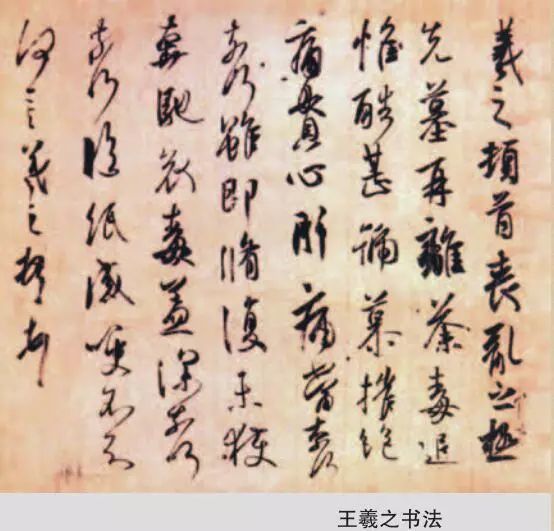 羲之頓首喪亂之極
先墓再離荼毒追
惟酷甚號慕摧絕
痛貫心肝痛當奈何
奈何雖即脩復未獲
奔馳哀毒益深奈何
奈何臨紙感哽不知
何言羲之頓首頓首
王羲之书法